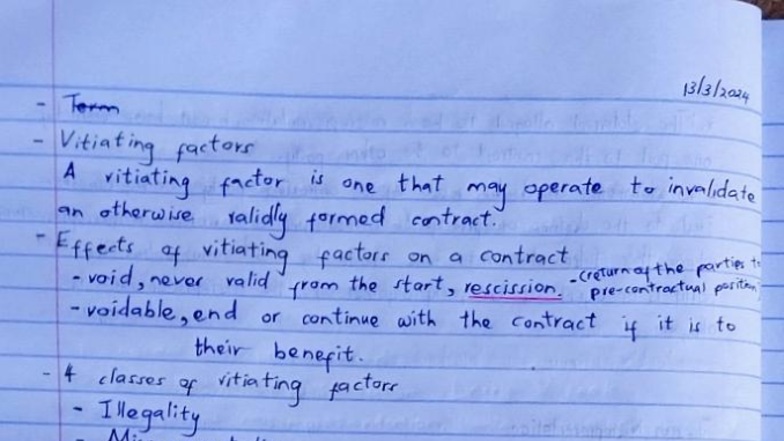 13/3/2024
- Term
- Vitiating factors
A vitiating factor is one that may operate to invalidate
an otherwise validly formed contract.
- Effects of vitiating factors on a contract
- void, never valid from the start, rescission. - (return of the parties to
pre-contractual position)
- voidable, end or continue with the contract if it is to
their benefit.
- 4 classes of vitiating factors
- Illegality